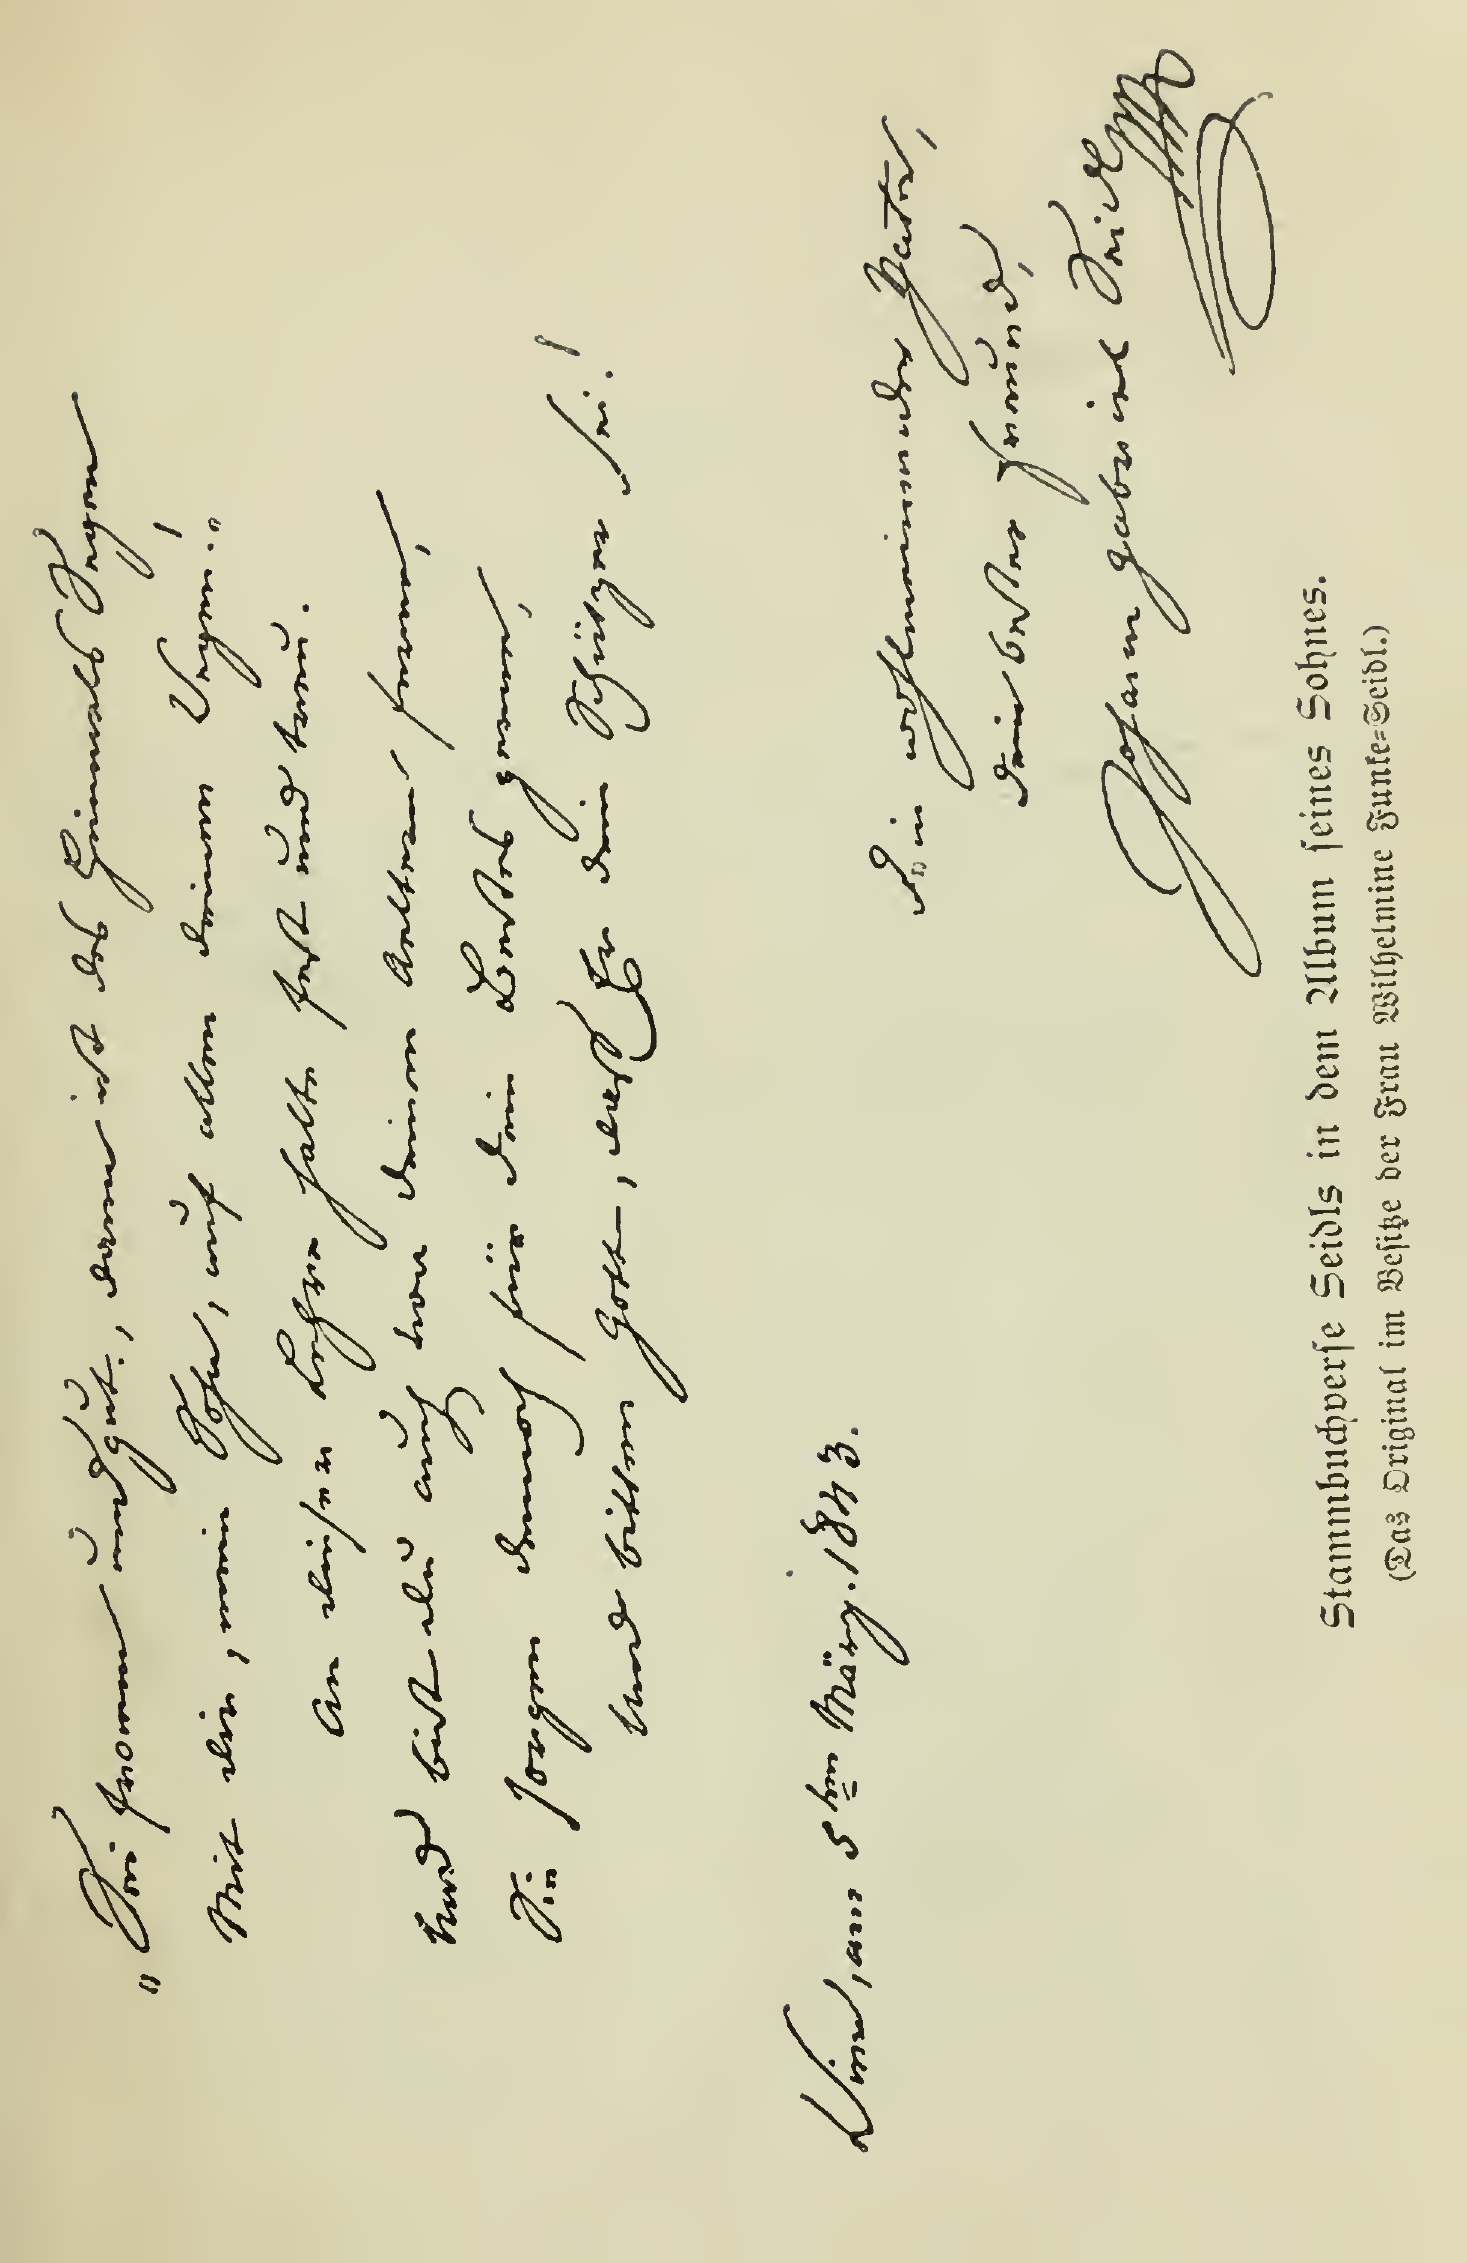 „Sei fromm und gut, dann ist des Himmels Segen
Mit dir, mein Sohn, auf allen deinen Wegen!"
An dieser Lehre halte fest und treu.
Und bist du auch von deinen Aeltern fern,
Sie sorgen dennoch für dein Bestes gern,
Und bitten Gott, daß Er dein Schützer sei!
Wien, am 5ten März 1843.
Dein wohlmeinender Vater,
dein bester Freund,
Johann Gabriel Seidl
Stammbuchverse Seidls in dem Album seines Sohnes.
(Das Original im Besitze der Frau Wilhelmine Funke-Seidl.)